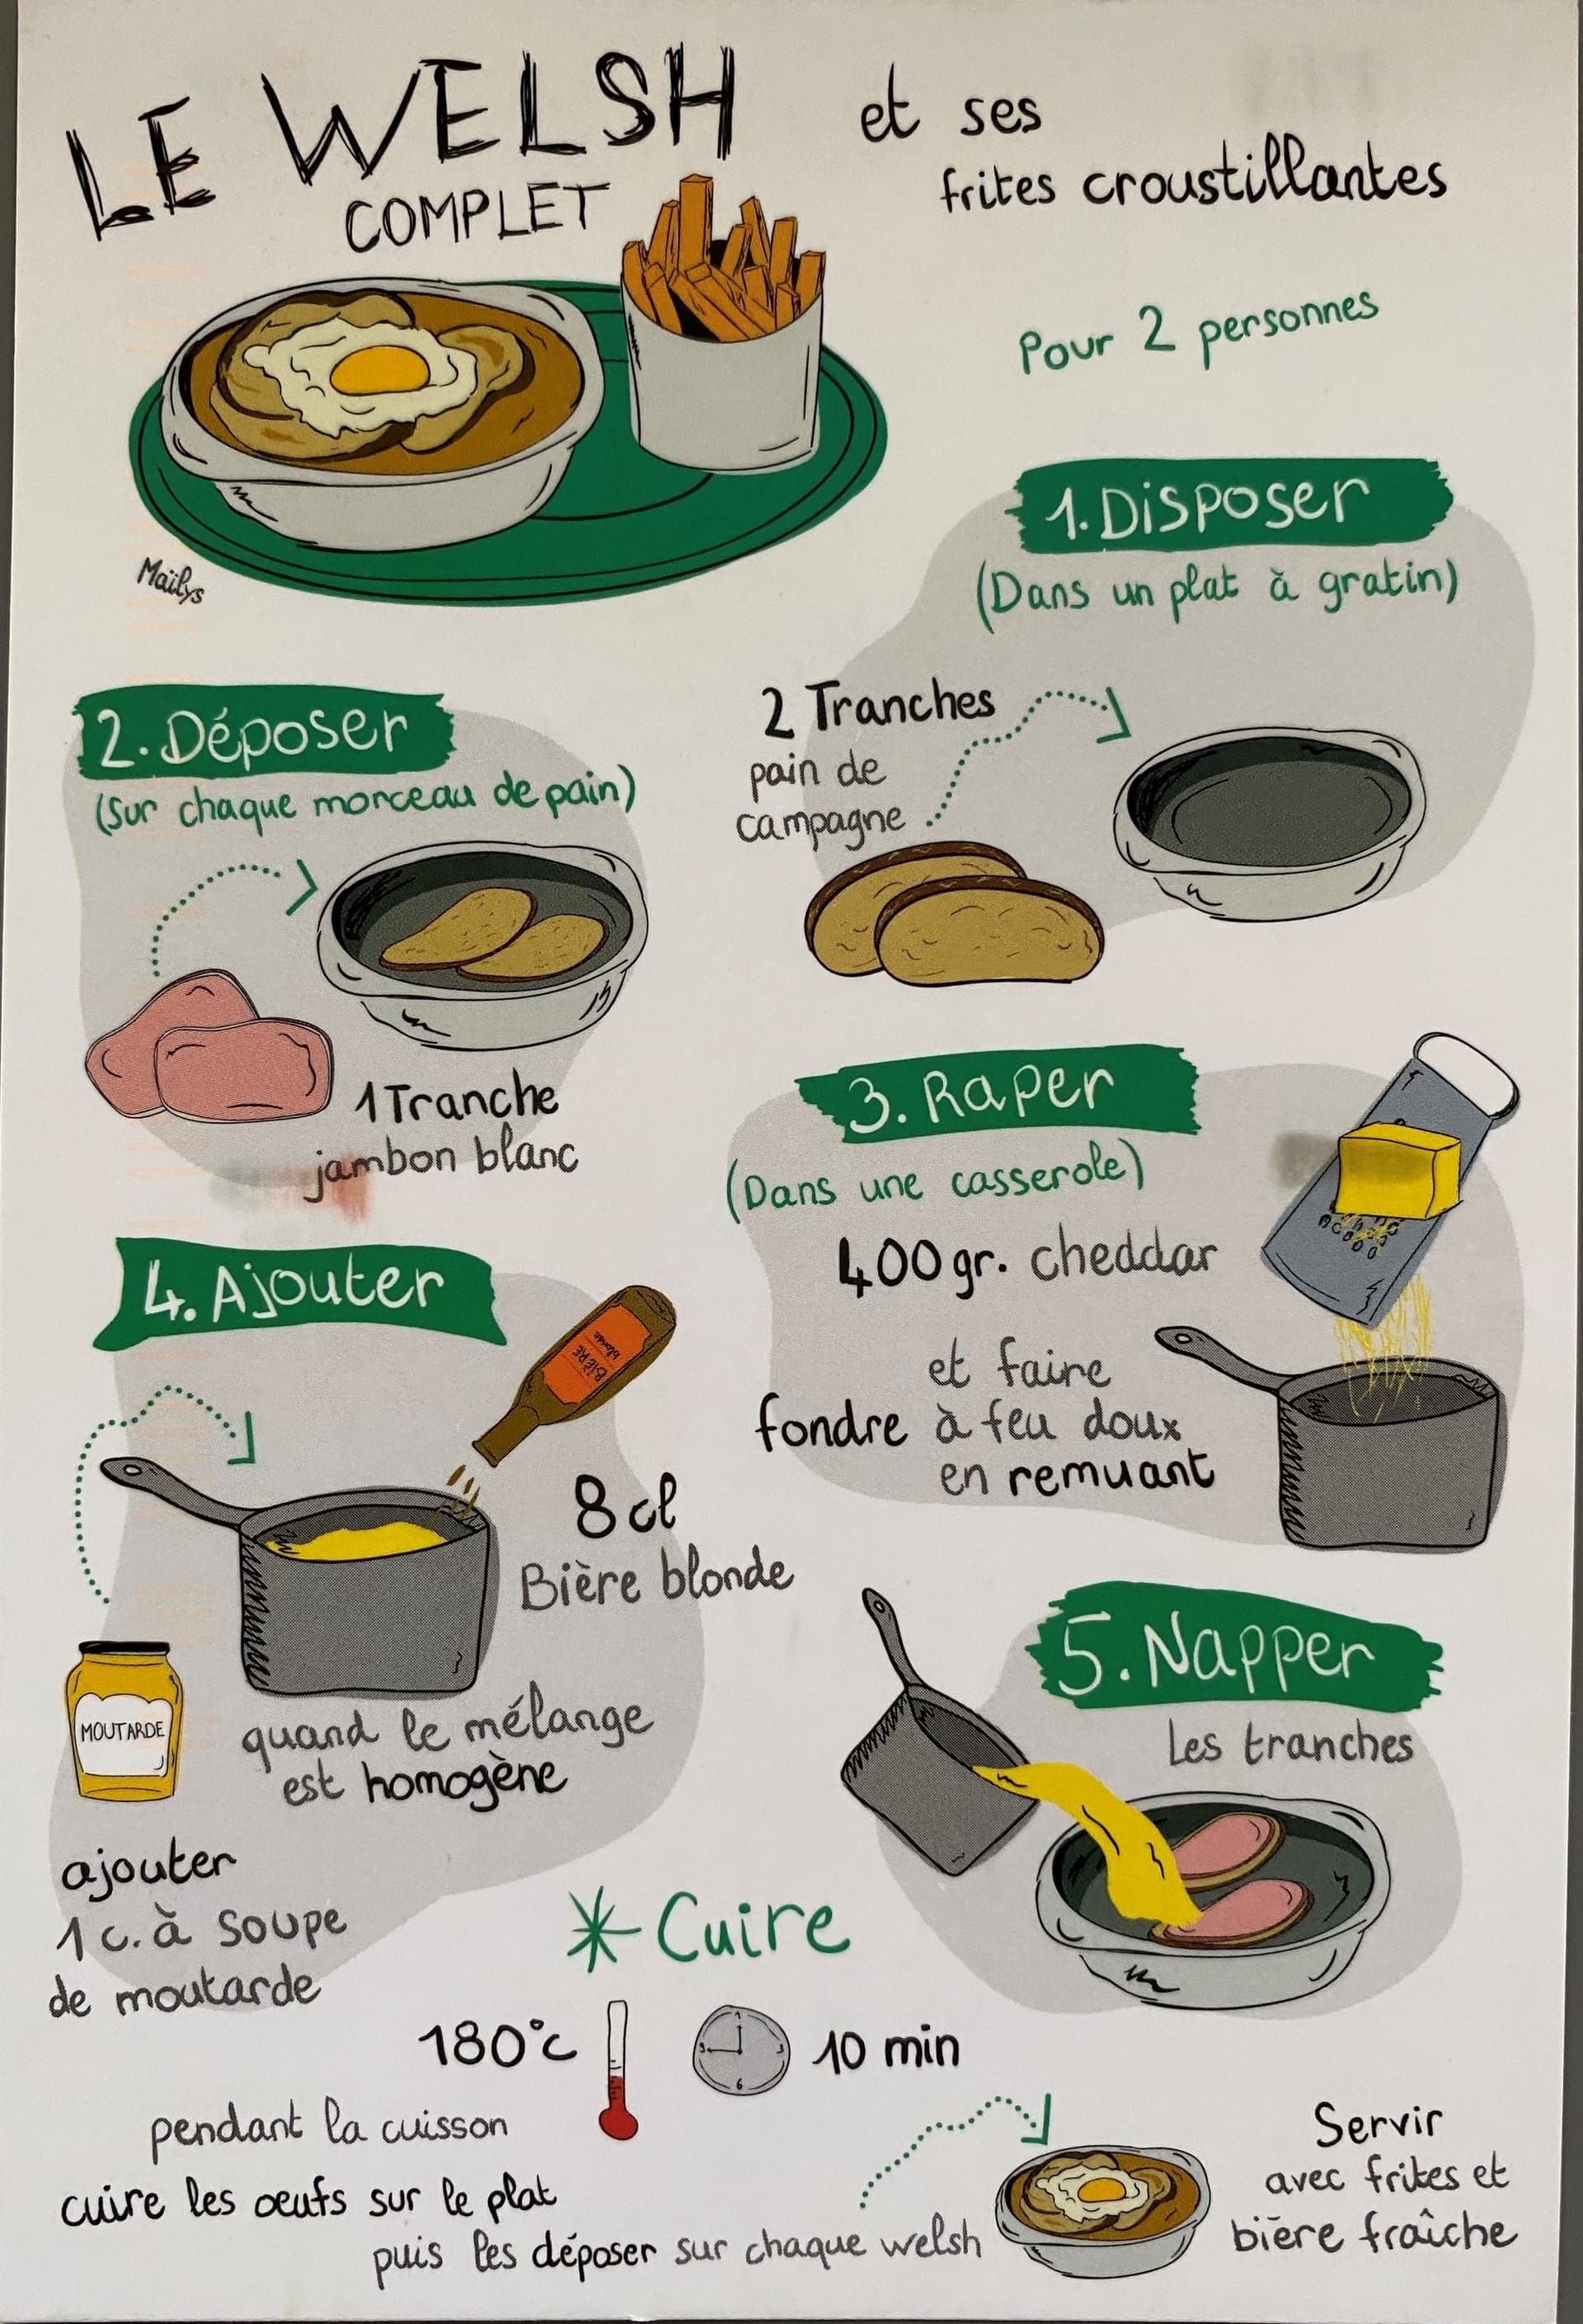 LE WELSH
COMPLET
et ses
frites croustillantes
Pour 2 personnes
Maïlys
1. Disposer
(Dans un plat à gratin)
2 Tranches
pain de
campagne
2. Déposer
(Sur chaque morceau de pain)
1 Tranche
jambon blanc
3. Raper
(Dans une casserole)
400 gr. cheddar
et faire
fondre à feu doux
en remuant
4. Ajouter
BIÈRE
blonde
8 cl
Bière blonde
MOUTARDE
quand le mélange
est homogène
ajouter
1 c. à soupe
de moutarde
5. Napper
les tranches
* Cuire
180°c
10 min
pendant la cuisson
cuire les oeufs sur le plat
puis les déposer sur chaque welsh
Servir
avec frites et
bière fraîche